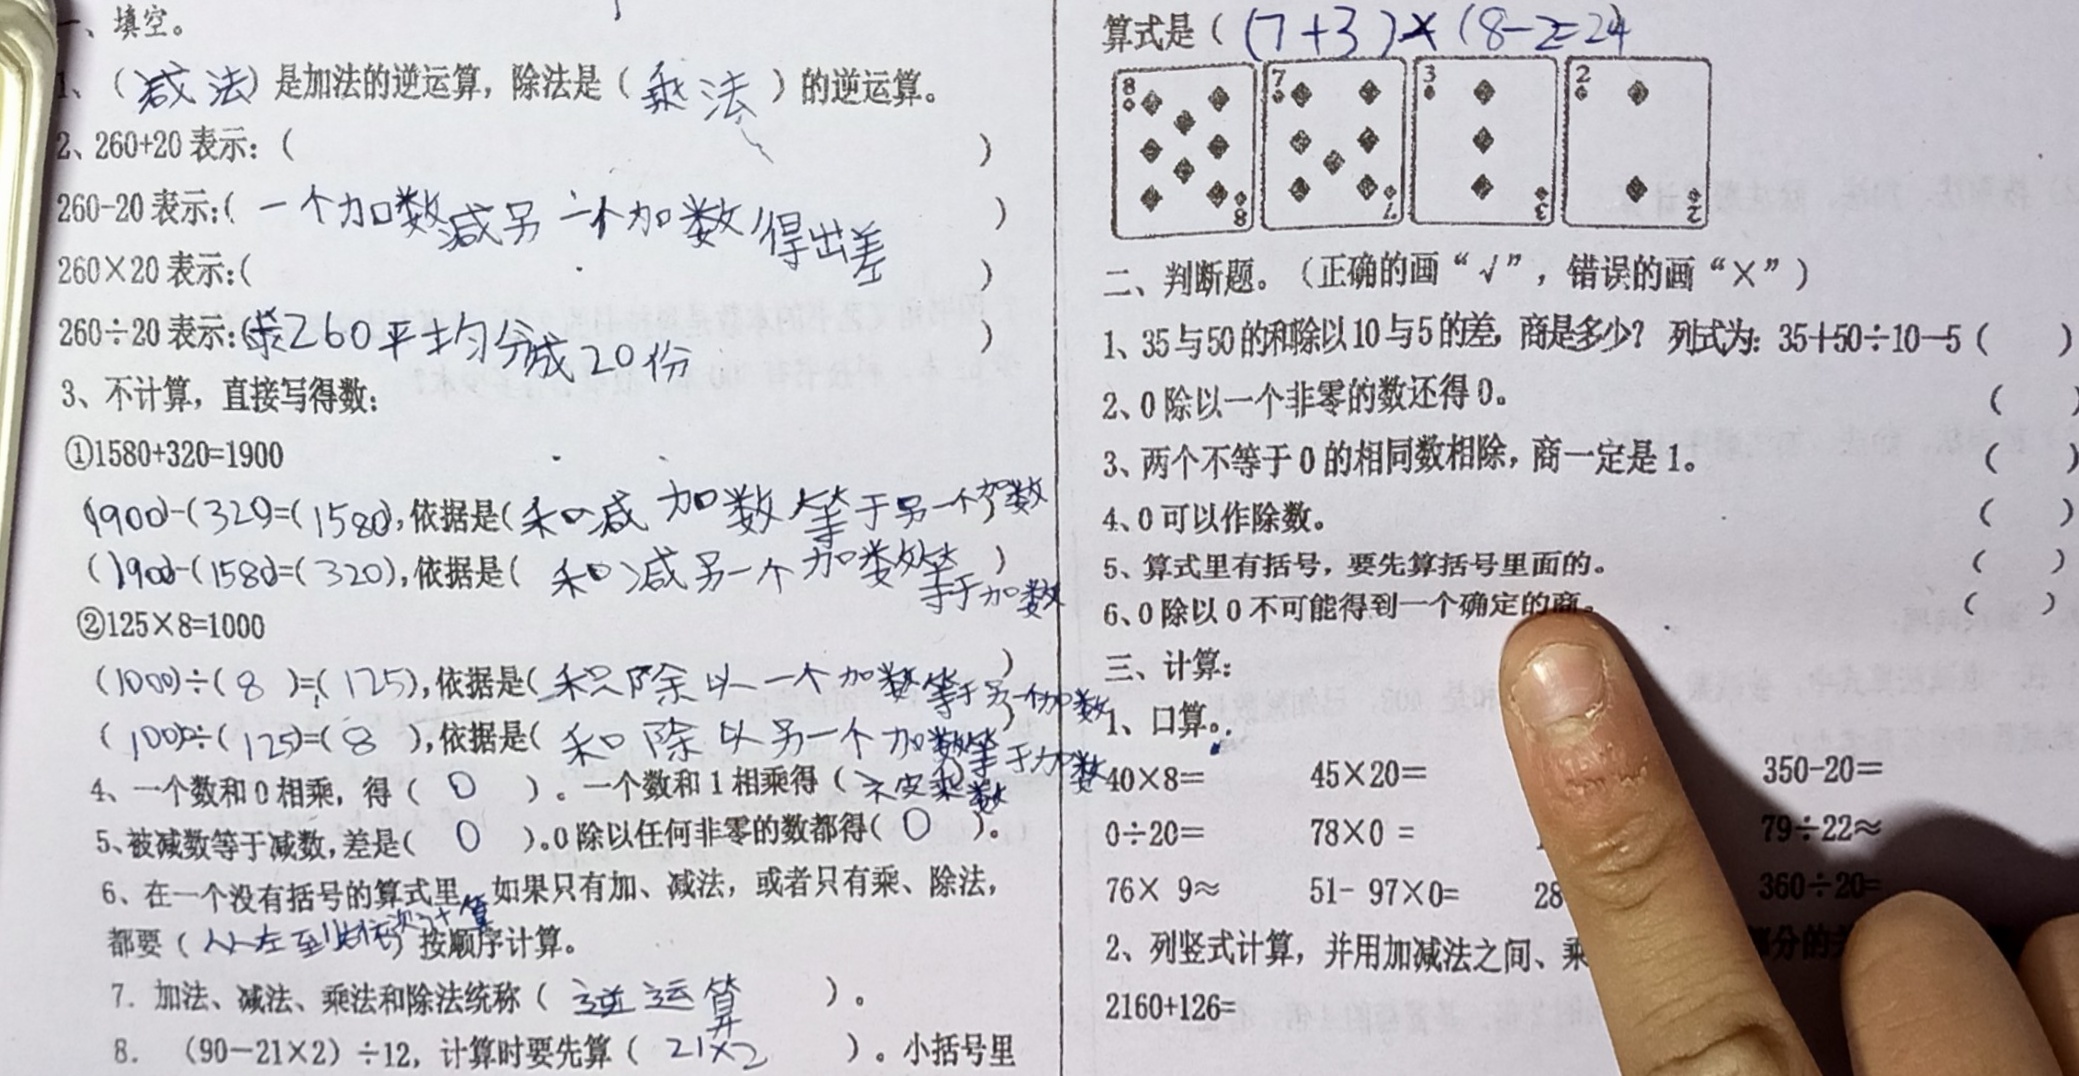 一、填空。
1、（减法）是加法的逆运算，除法是（乘法）的逆运算。
2、260+20表示：（ ）
260-20表示:(一个加数减另一个加数得出差)
260×20表示:( )
260÷20表示:(求260平均分成20份)
3、不计算，直接写得数：
①1580+320=1900
(1900)-(320)=(1580),依据是(和减加数等于另一个加数)
(1900)-(1580)=(320),依据是(和减另一个加数等于加数)
②125×8=1000
(1000)÷(8)=(125),依据是(积除以一个加数等于另一个加数)
(1000)÷(125)=(8),依据是(和除以另一个加数等于加数)
4、一个数和0相乘，得（0）。一个数和1相乘得（ 乘数）
5、被减数等于减数,差是(0)。0除以任何非零的数都得(0)。
6、在一个没有括号的算式里，如果只有加、减法，或者只有乘、除法，
都要（从左到 依次计算）按顺序计算。
7．加法、减法、乘法和除法统称（逆运算）。
8．（90－21×2）÷12，计算时要先算（21×2）。小括号里
算式是（(7+3)×(8-2=24
8 7 3 2
8 7 3 2
二、判断题。（正确的画“√”，错误的画“×”）
1、35与50的和除以10与5的差，商是多少？列式为：35＋50÷10－5（ ）
2、0除以一个非零的数还得0。（ ）
3、两个不等于0的相同数相除，商一定是1。（ ）
4、0可以作除数。（ ）
5、算式里有括号，要先算括号里面的。（ ）
6、0除以0不可能得到一个确定的商。（ ）
三、计算：
1、口算。
40×8= 45×20= 350-20=
0÷20= 78×0 = 79÷22≈
76× 9≈ 51- 97×0= 28 360÷20=
2、列竖式计算，并用加减法之间、乘 部分的关
2160+126=